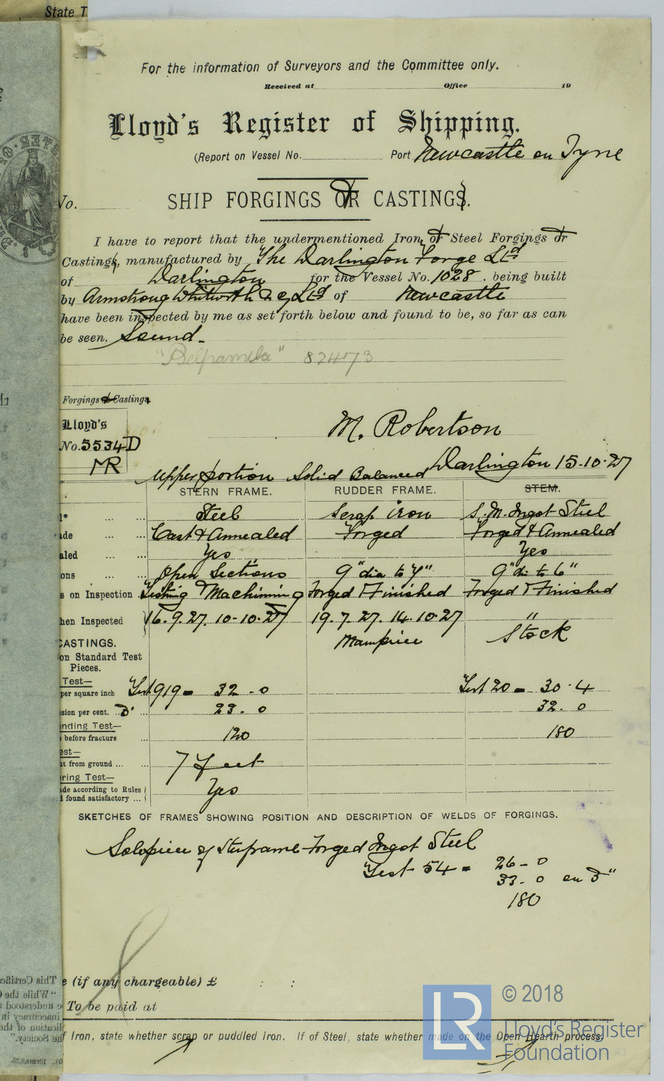 State T
For the information of Surveyors and the Committee only.
Received at Office 19
Lloyd's Register of Shipping.
(Report on Vessel No. Port Newcastle on Tyne
No. SHIP FORGINGS OR CASTINGS.
I have to report that the undermentioned Iron or Steel Forgings or
Castings, manufactured by The Darlington Forge Ltd
of Darlington for the Vessel No. 1028. being built
by Armstrong Whitworth & Co Ltd of Newcastle
have been inspected by me as set forth below and found to be, so far as can
be seen. Sound.
"Belpamela" 82473
Forgings or Castings
Lloyd's
No. 5534D
MR
M. Robertson
Darlington 15-10-27
Upper portion Solid Balanced
STERN FRAME. RUDDER FRAME. STEM.
Steel Scrap iron S. M. Ingot Steel
ade Cast & Annealed Forged Forged & Annealed
aled Yes Yes
ons Open Sections 9" dia to 4" 9" di to 6"
s on Inspection Testing & Machining Forged & Finished Forged & Finished
hen Inspected 16.9.27. 10-10-27 19.7.27. 14.10.27 "
Stock
CASTINGS.
on Standard Test
Pieces.
Test—
per square inch Test 919 = 32.0 Test 20 = 30.4
sion per cent. 23.0 32.0
ending Test—
before fracture 120 180
est—
t from ground 7 feet
ring Test—
de according to Rules Yes
found satisfactory
SKETCHES OF FRAMES SHOWING POSITION AND DESCRIPTION OF WELDS OF FORGINGS.
Solepiece of Stnframe Forged Ingot Steel
Test 54 = 26-0
33-0 on 3"
180
e (if any chargeable) £ : :
To be paid at
f Iron, state whether scrap or puddled iron. If of Steel, state whether made on the Open Hearth process.
LR © 2018
Lloyd's Register
Foundation